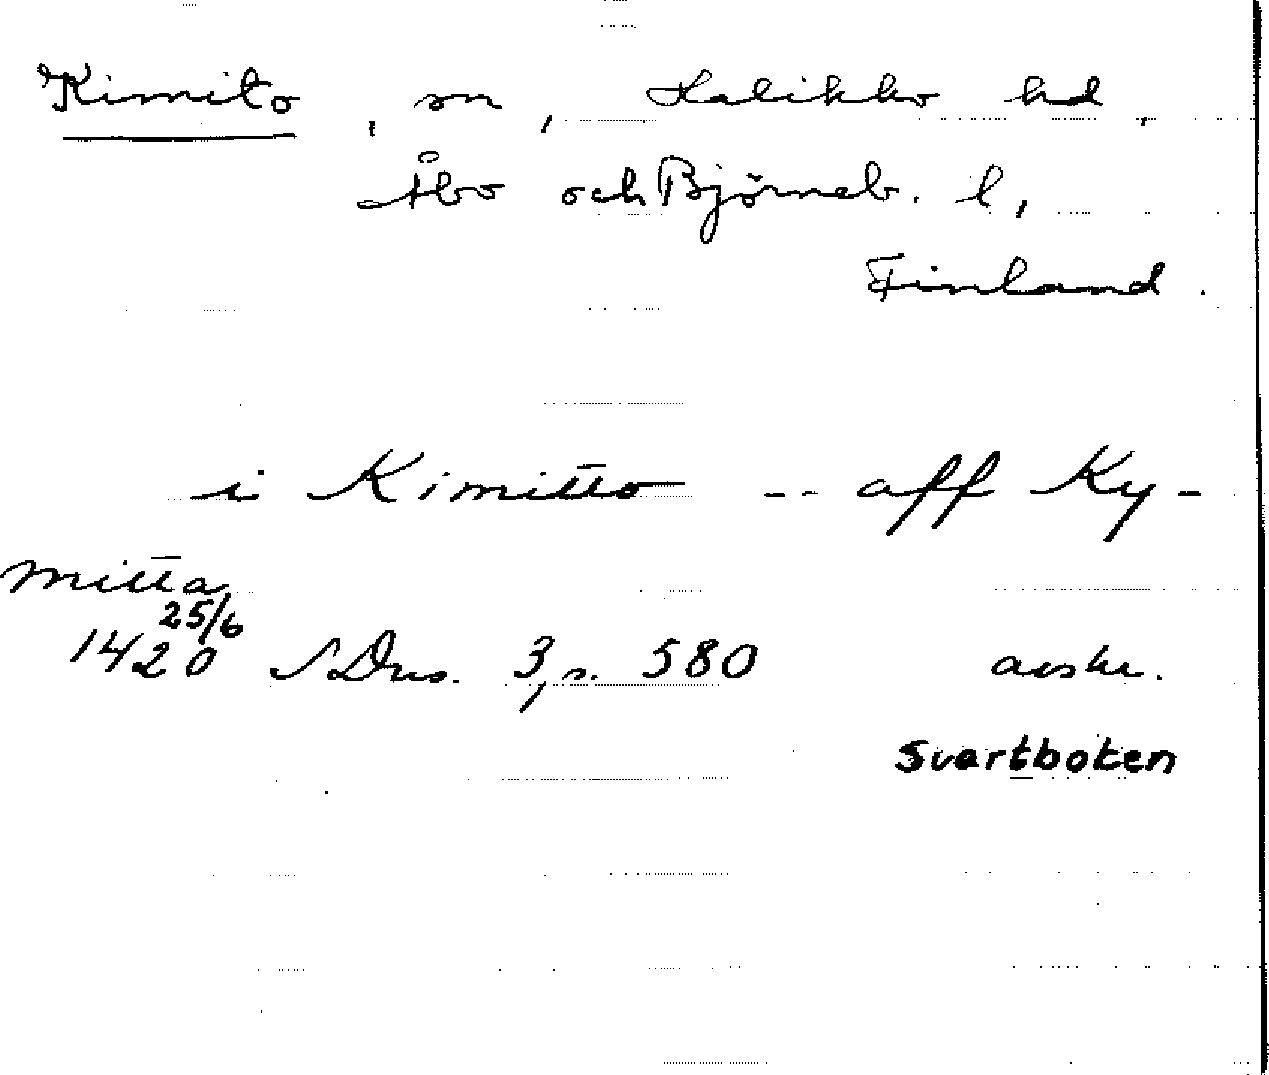 Kimito, sn, Halikko hd,
Åbo och Björneb. l,
Finland.
i Kimitto -- aff Ky-
mitta
1420 25/6 SDns. 3, s. 580 avskr.
Svartboken